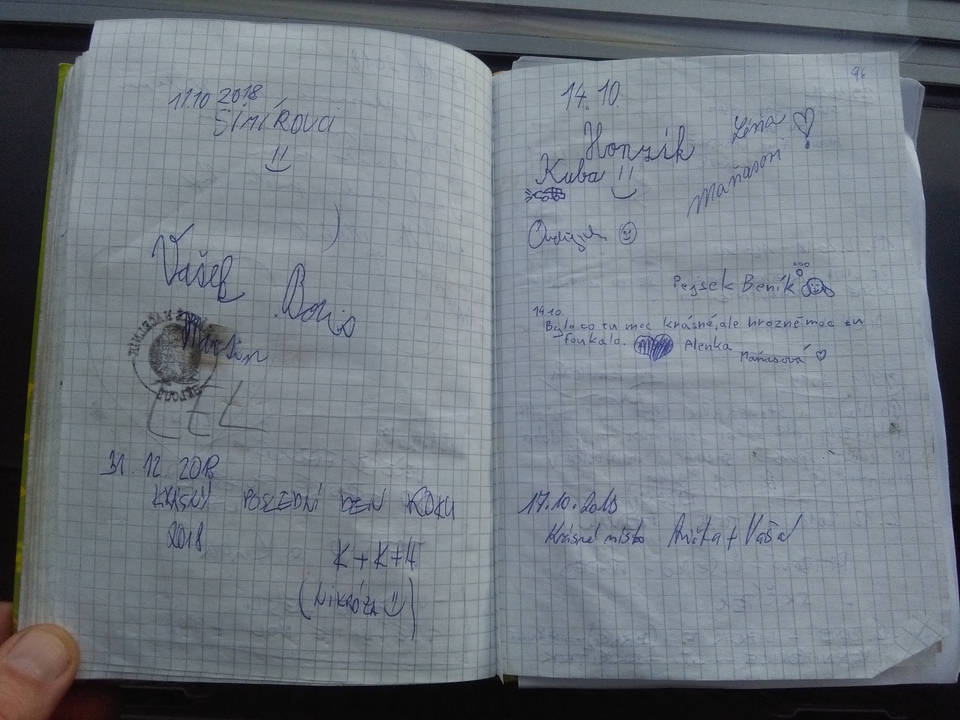 11.10 2018
ŠÍMÍŘOVCI
Vašek
Boris
Martin
31. 12. 2018
KRÁSNÝ POSLEDNÍ DEN ROKU
2018
K + K + H
(NIKRÓZA)
96
14. 10.
Honzík
Léňa
Kuba
Maňason
Ondrášek
Pejsek Beník
14.10.
Bylo to tu moc krásné, ale hrozně moc tu
foukalo. Alenka
Maňasová
17.10.2018
Krásné místo Anička + Vašek